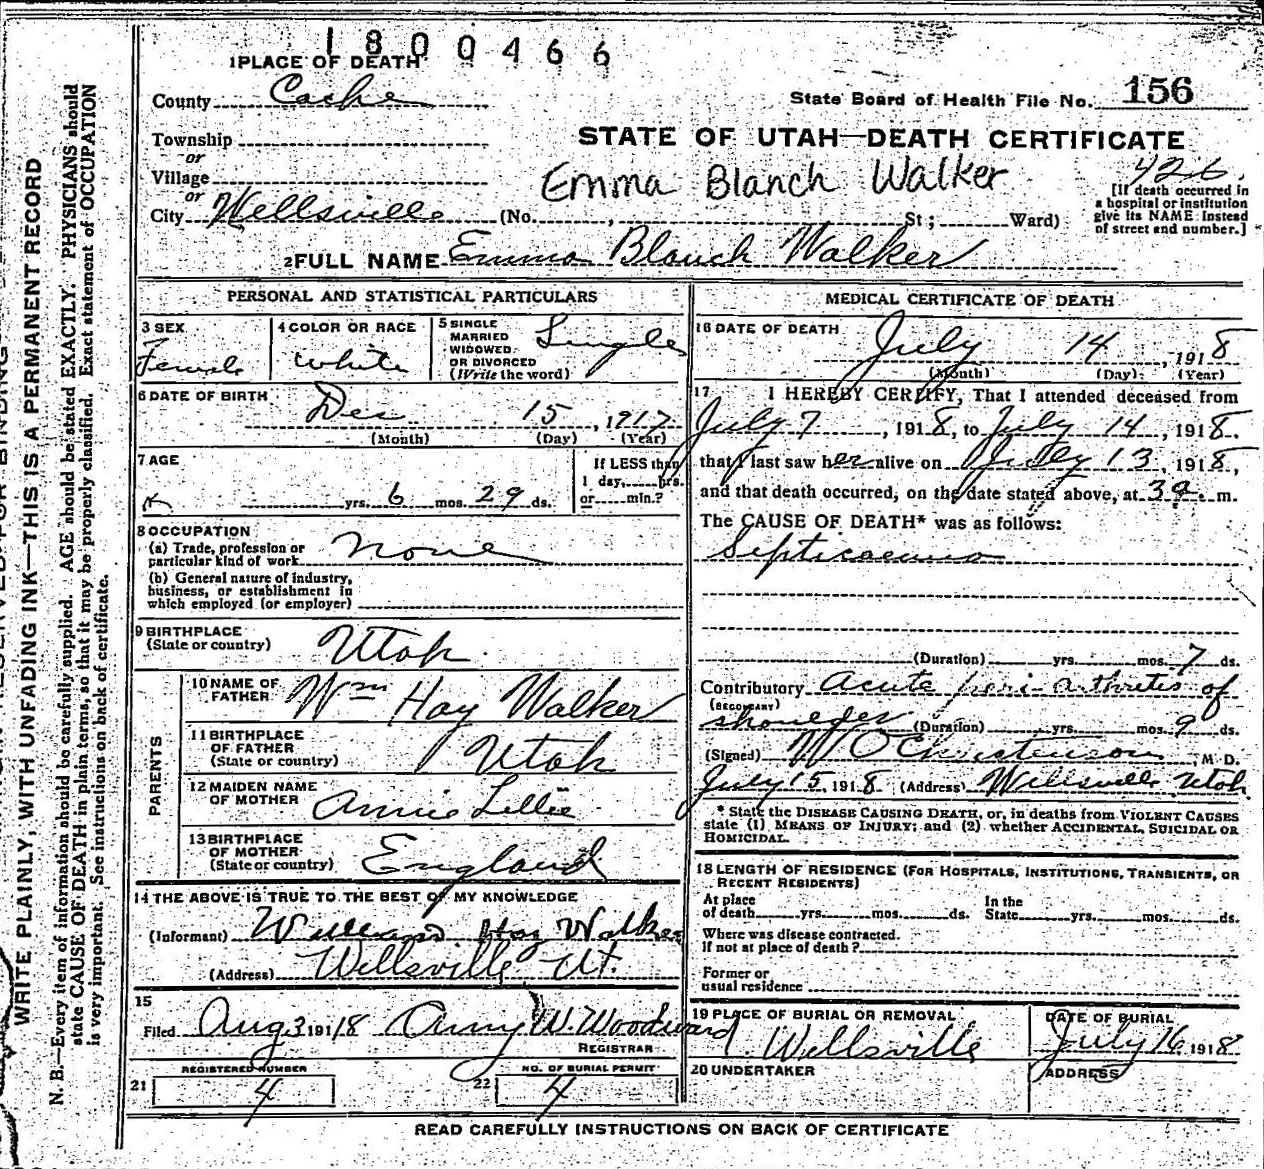 1800466
1 PLACE OF DEATH
County Cache
State Board of Health File No. 156
Township
or
Village
or
City Wellsville (No. , St; Ward)
STATE OF UTAH—DEATH CERTIFICATE
Emma Blanch Walker
426.
[If death occurred in
a hospital or institution
give its NAME instead
of street and number.]
2 FULL NAME Emma Blanch Walker
PERSONAL AND STATISTICAL PARTICULARS
3 SEX
Female
4 COLOR OR RACE
White
5 SINGLE
MARRIED
WIDOWED
OR DIVORCED
(Write the word)
Single
6 DATE OF BIRTH
Dec 15, 1917
(Month) (Day) (Year)
7 AGE
yrs. 6 mos. 29 ds.
If LESS than
1 day, hrs.
or min.?
8 OCCUPATION
(a) Trade, profession or
particular kind of work None
(b) General nature of industry,
business, or establishment in
which employed (or employer)
9 BIRTHPLACE
(State or country) Utah.
PARENTS
10 NAME OF
FATHER Wm Hay Walker
11 BIRTHPLACE
OF FATHER
(State or country) Utah
12 MAIDEN NAME
OF MOTHER Annie Lillie
13 BIRTHPLACE
OF MOTHER
(State or country) England
14 THE ABOVE IS TRUE TO THE BEST OF MY KNOWLEDGE
(Informant) William Hay Walker
(Address) Wellsville Ut.
15
Filed Aug 3 1918 Amy W. Woodward
REGISTRAR
REGISTERED NUMBER
21 4
NO. OF BURIAL PERMIT
22 4
MEDICAL CERTIFICATE OF DEATH
16 DATE OF DEATH
July 14, 1918
(Month) (Day) (Year)
17 I HEREBY CERTIFY, That I attended deceased from
July 7, 1918, to July 14, 1918.
that I last saw her alive on July 13, 1918,
and that death occurred, on the date stated above, at 3 a. m.
The CAUSE OF DEATH* was as follows:
Septicaemia
(Duration) yrs. mos. 7 ds.
Contributory Acute peri-arthretis of
(SECONDARY)
shoulder (Duration) yrs. mos. 9 ds.
(Signed) W O Christenson M D.
July 15 1918 (Address) Wellsville Utah.
* State the DISEASE CAUSING DEATH, or, in deaths from VIOLENT CAUSES
state (1) MEANS OF INJURY; and (2) whether ACCIDENTAL, SUICIDAL OR
HOMICIDAL.
18 LENGTH OF RESIDENCE (FOR HOSPITALS, INSTITUTIONS, TRANSIENTS, OR
RECENT RESIDENTS)
At place
of death yrs. mos. ds.
In the
State yrs. mos. ds.
Where was disease contracted.
if not at place of death?
Former or
usual residence
19 PLACE OF BURIAL OR REMOVAL
Wellsville
DATE OF BURIAL
July 16 1918
20 UNDERTAKER
ADDRESS
READ CAREFULLY INSTRUCTIONS ON BACK OF CERTIFICATE
WRITE PLAINLY, WITH UNFADING INK—THIS IS A PERMANENT RECORD
N. B.—Every item of information should be carefully supplied. AGE should be stated EXACTLY. PHYSICIANS should
state CAUSE OF DEATH in plain terms, so that it may be properly classified. Exact statement of OCCUPATION
is very important. See instructions on back of certificate.